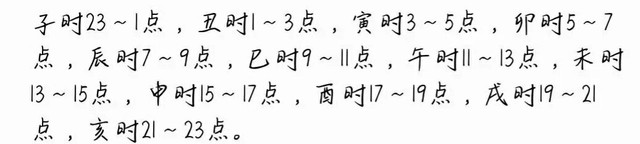 子时23~1点，丑时1~3点，寅时3~5点，卯时5~7
点，辰时7~9点，巳时9~11点，午时11~13点，未时
13~15点，申时15~17点，酉时17~19点，戌时19~21
点，亥时21~23点。